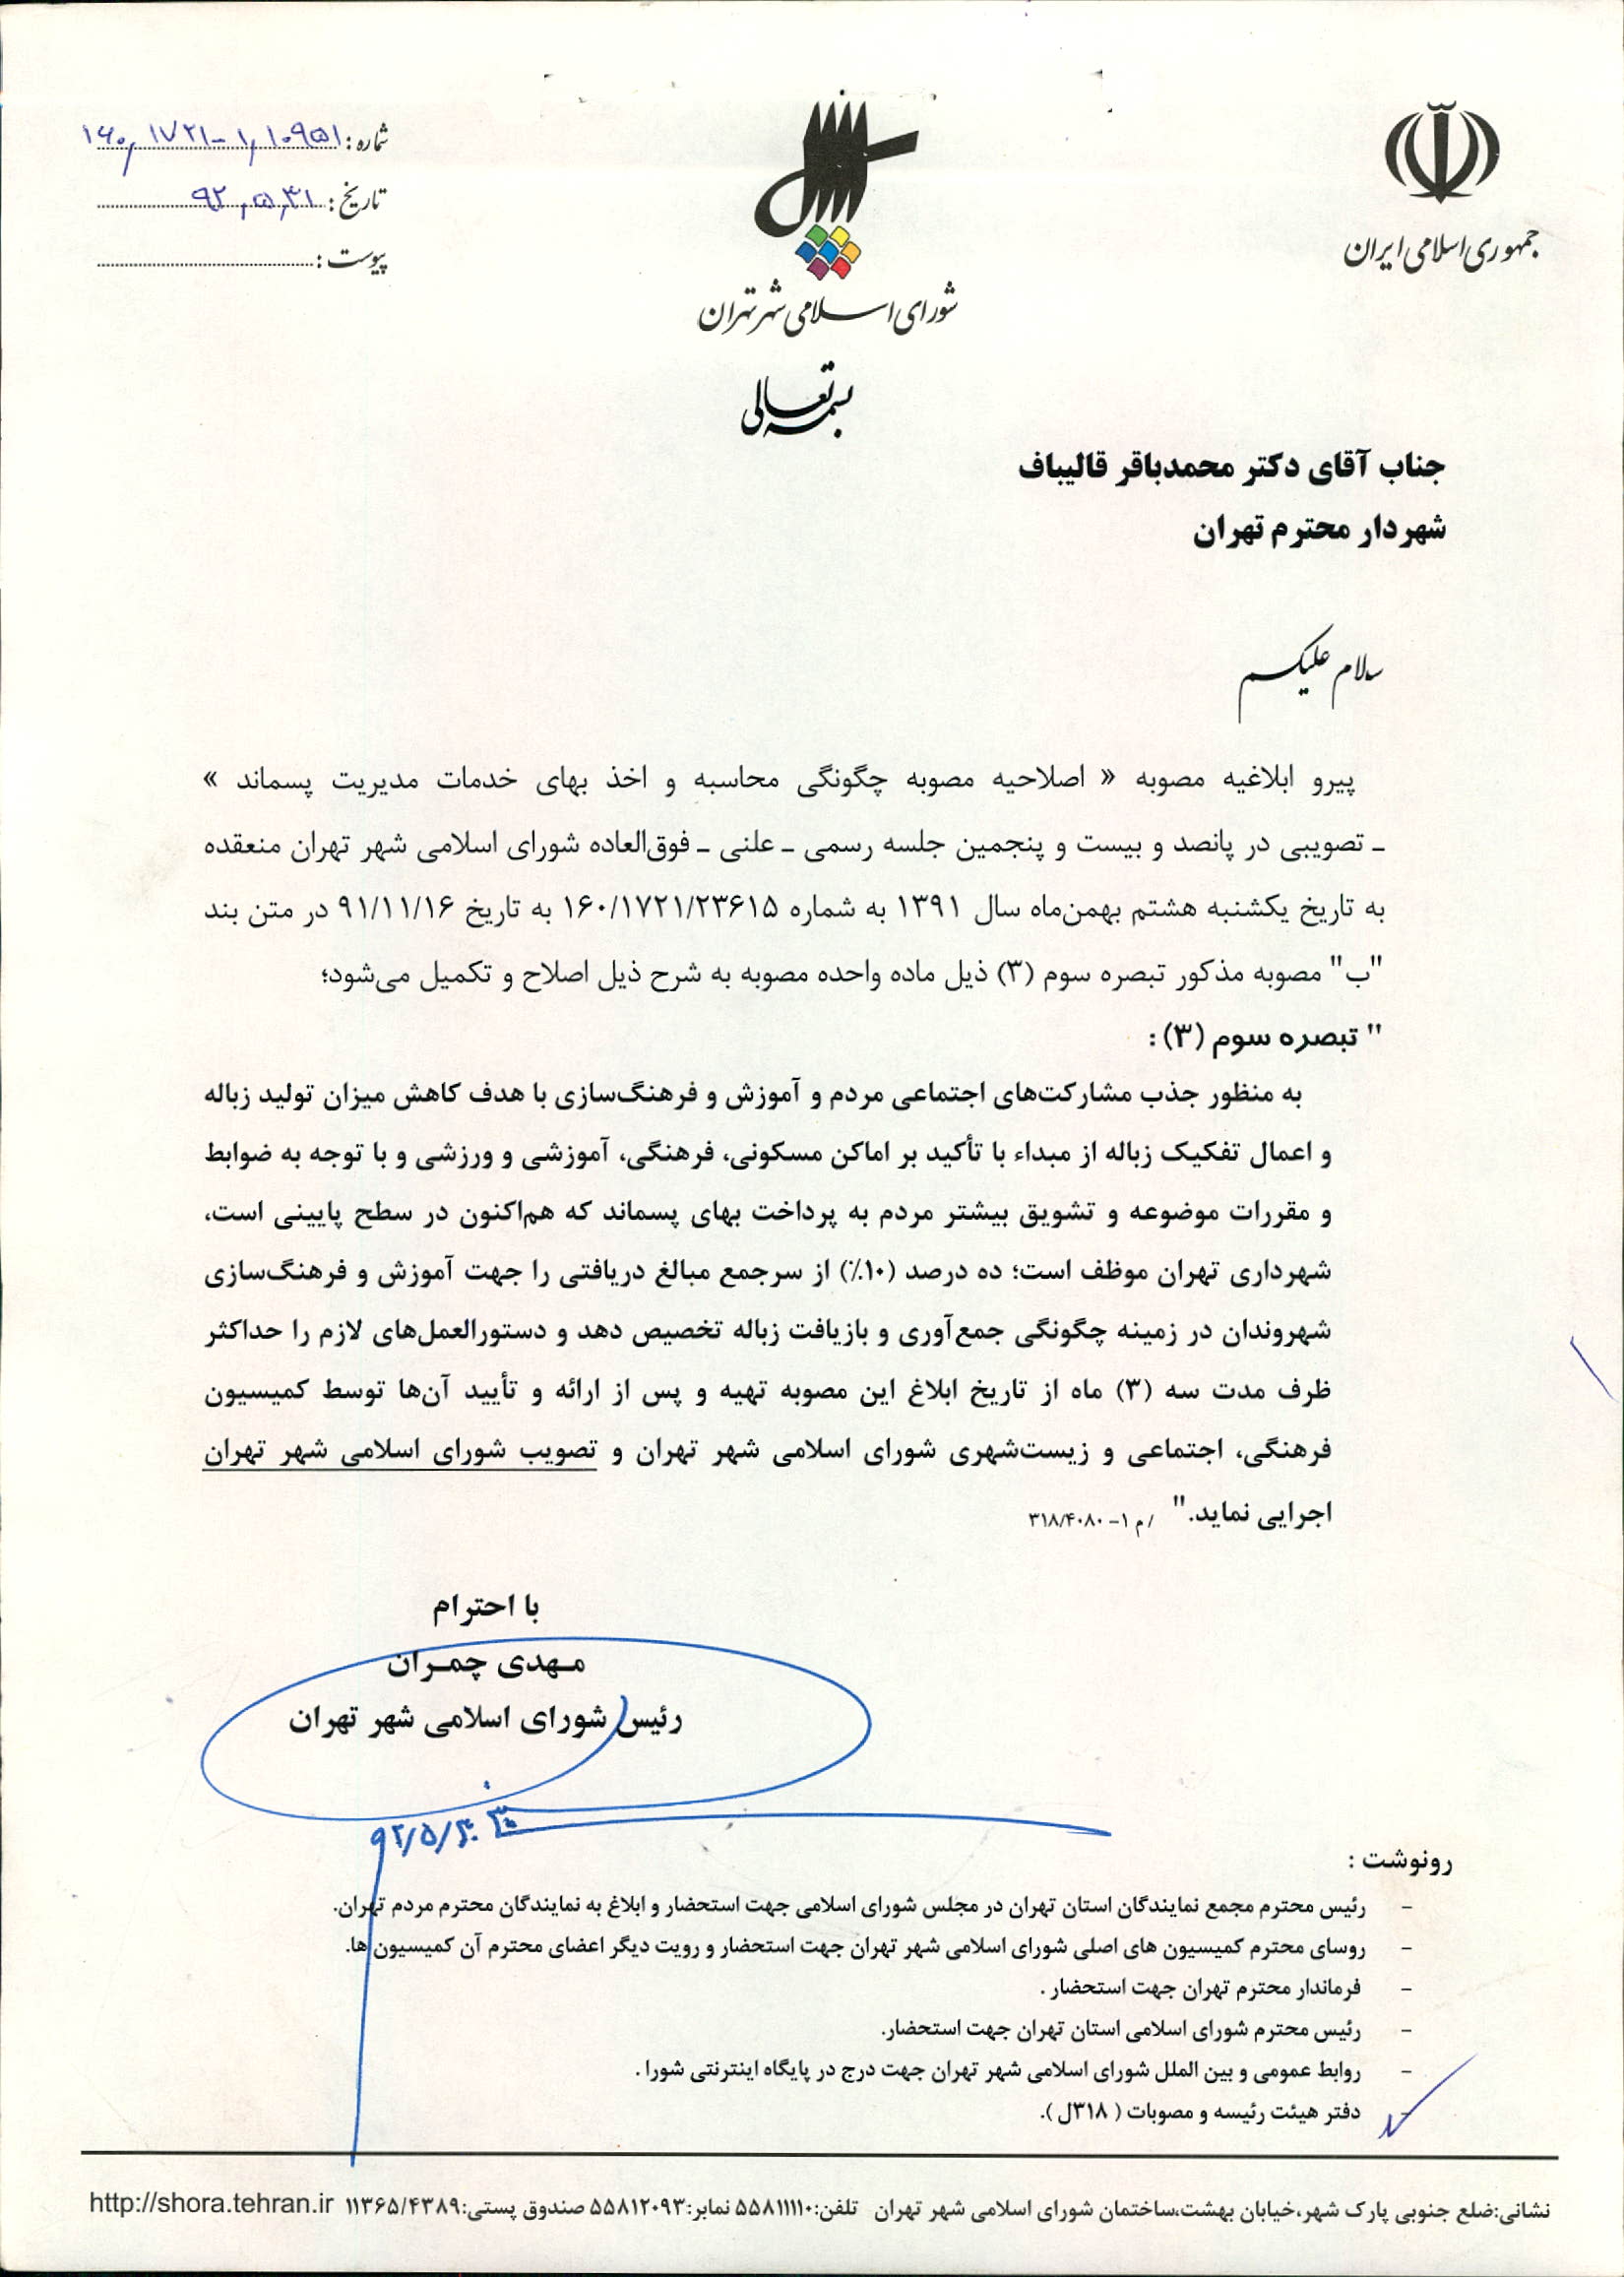 جمهوری اسلامی ایران
شورای اسلامی شهر تهران
شماره : ۱۶۰/۱۷۲۱-۱/۱۰۹۵۱
تاریخ : ۹۲/۵/۳۱
پیوست :
بسمه تعالی
جناب آقای دکتر محمدباقر قالیباف
شهردار محترم تهران
سلام علیکم
پیرو ابلاغیه مصوبه « اصلاحیه مصوبه چگونگی محاسبه و اخذ بهای خدمات مدیریت پسماند »
ـ تصویبی در پانصد و بیست و پنجمین جلسه رسمی ـ علنی ـ فوق‌العاده شورای اسلامی شهر تهران منعقده
به تاریخ یکشنبه هشتم بهمن‌ماه سال ۱۳۹۱ به شماره ۱۶۰/۱۷۲۱/۲۳۶۱۵ به تاریخ ۹۱/۱۱/۱۶ در متن بند
"ب" مصوبه مذکور تبصره سوم (۳) ذیل ماده واحده مصوبه به شرح ذیل اصلاح و تکمیل می‌شود؛
" تبصره سوم (۳) :
به منظور جذب مشارکت‌های اجتماعی مردم و آموزش و فرهنگ‌سازی با هدف کاهش میزان تولید زباله
و اعمال تفکیک زباله از مبداء با تأکید بر اماکن مسکونی، فرهنگی، آموزشی و ورزشی و با توجه به ضوابط
و مقررات موضوعه و تشویق بیشتر مردم به پرداخت بهای پسماند که هم‌اکنون در سطح پایینی است،
شهرداری تهران موظف است؛ ده درصد (۱۰٪) از سرجمع مبالغ دریافتی را جهت آموزش و فرهنگ‌سازی
شهروندان در زمینه چگونگی جمع‌آوری و بازیافت زباله تخصیص دهد و دستورالعمل‌های لازم را حداکثر
ظرف مدت سه (۳) ماه از تاریخ ابلاغ این مصوبه تهیه و پس از ارائه و تأیید آن‌ها توسط کمیسیون
فرهنگی، اجتماعی و زیست‌شهری شورای اسلامی شهر تهران و تصویب شورای اسلامی شهر تهران
اجرایی نماید." /م ۱- ۳۱۸/۴۰۸۰
با احترام
مهدی چمران
رئیس شورای اسلامی شهر تهران
۹۲/۵/۳۰
رونوشت :
- رئیس محترم مجمع نمایندگان استان تهران در مجلس شورای اسلامی جهت استحضار و ابلاغ به نمایندگان محترم مردم تهران.
- روسای محترم کمیسیون های اصلی شورای اسلامی شهر تهران جهت استحضار و رویت دیگر اعضای محترم آن کمیسیون ها.
- فرماندار محترم تهران جهت استحضار .
- رئیس محترم شورای اسلامی استان تهران جهت استحضار.
- روابط عمومی و بین الملل شورای اسلامی شهر تهران جهت درج در پایگاه اینترنتی شورا .
- دفتر هیئت رئیسه و مصوبات ( ۳۱۸ل ).
نشانی:ضلع جنوبی پارک شهر،خیابان بهشت،ساختمان شورای اسلامی شهر تهران تلفن:۵۵۸۱۱۱۱۰ نمابر:۵۵۸۱۲۰۹۳ صندوق پستی:۱۱۳۶۵/۴۳۸۹ http://shora.tehran.ir